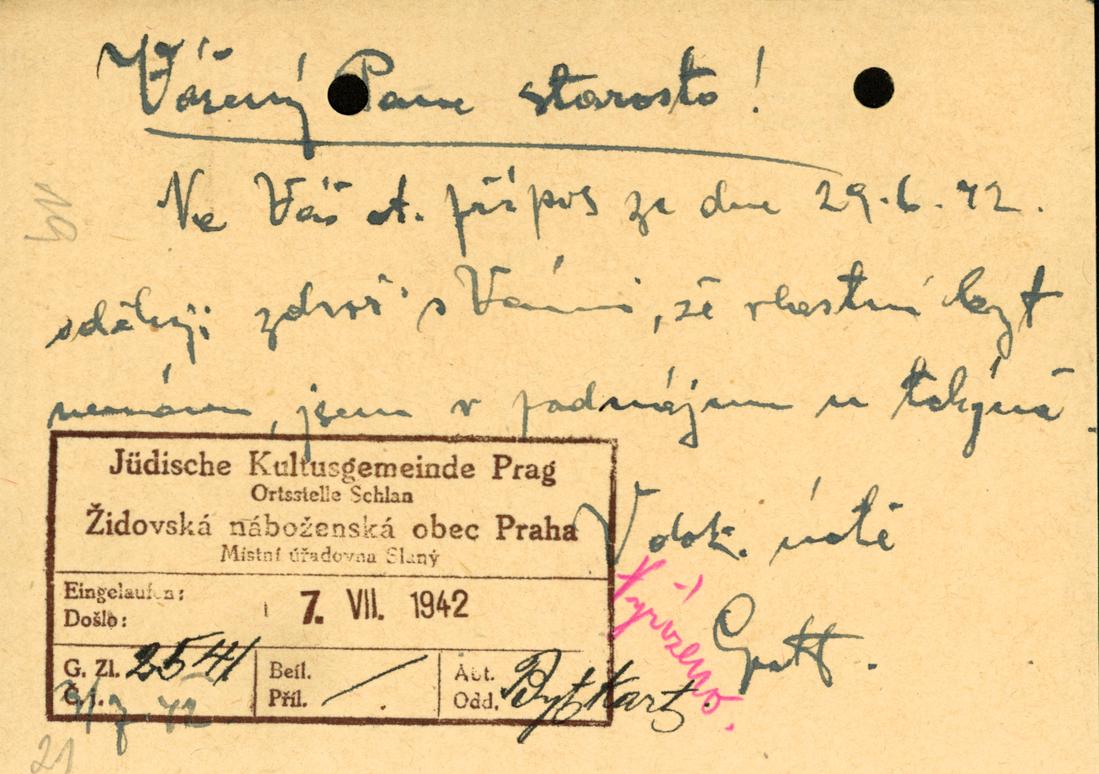 Vážený Pane starosto!
Na Váš d. přípis ze dne 29.6.42.
sděluji zdvoř. Vám, že vlastní byt
nemám, jsem v podnájmu u
V dok. úctě
Vyřízeno.
Jüdische Kultusgemeinde Prag
Ortsstelle Schlan
Židovská náboženská obec Praha
Místní úřadovna Slaný
Eingelaufen:
Došlo:
7. VII. 1942
G. Zl. 2541
Č. j.
Beil.
Příl. /
Abt.
Odd. Bytkart.
21